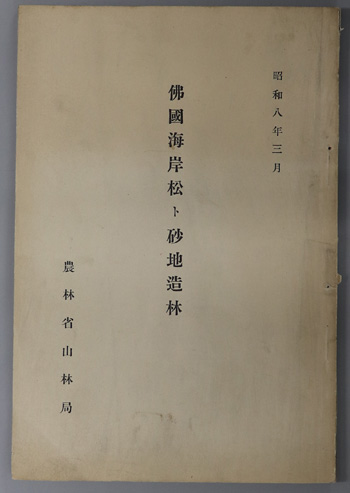 昭和八年三月
佛國海岸松ト砂地造林
農林省山林局